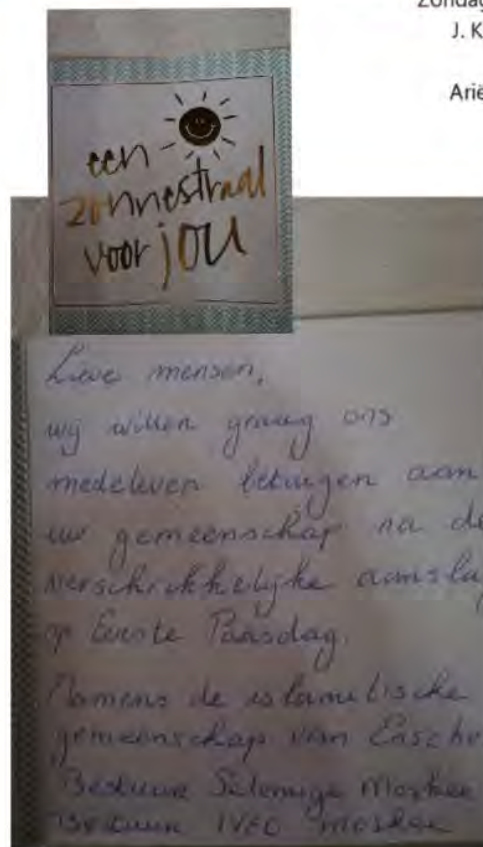 Zondag
J. K
Arië
een
zonnestraal
voor jou
Lieve mensen,
wij willen graag ons
medeleven betuigen aan
uw gemeenschap na de
verschrikkelijke aanslag
op Eerste Paasdag.
Namens de islamitische
gemeenschap van Ensche
Bestuur Selimiye Moskee
Bestuur IVEO moskee